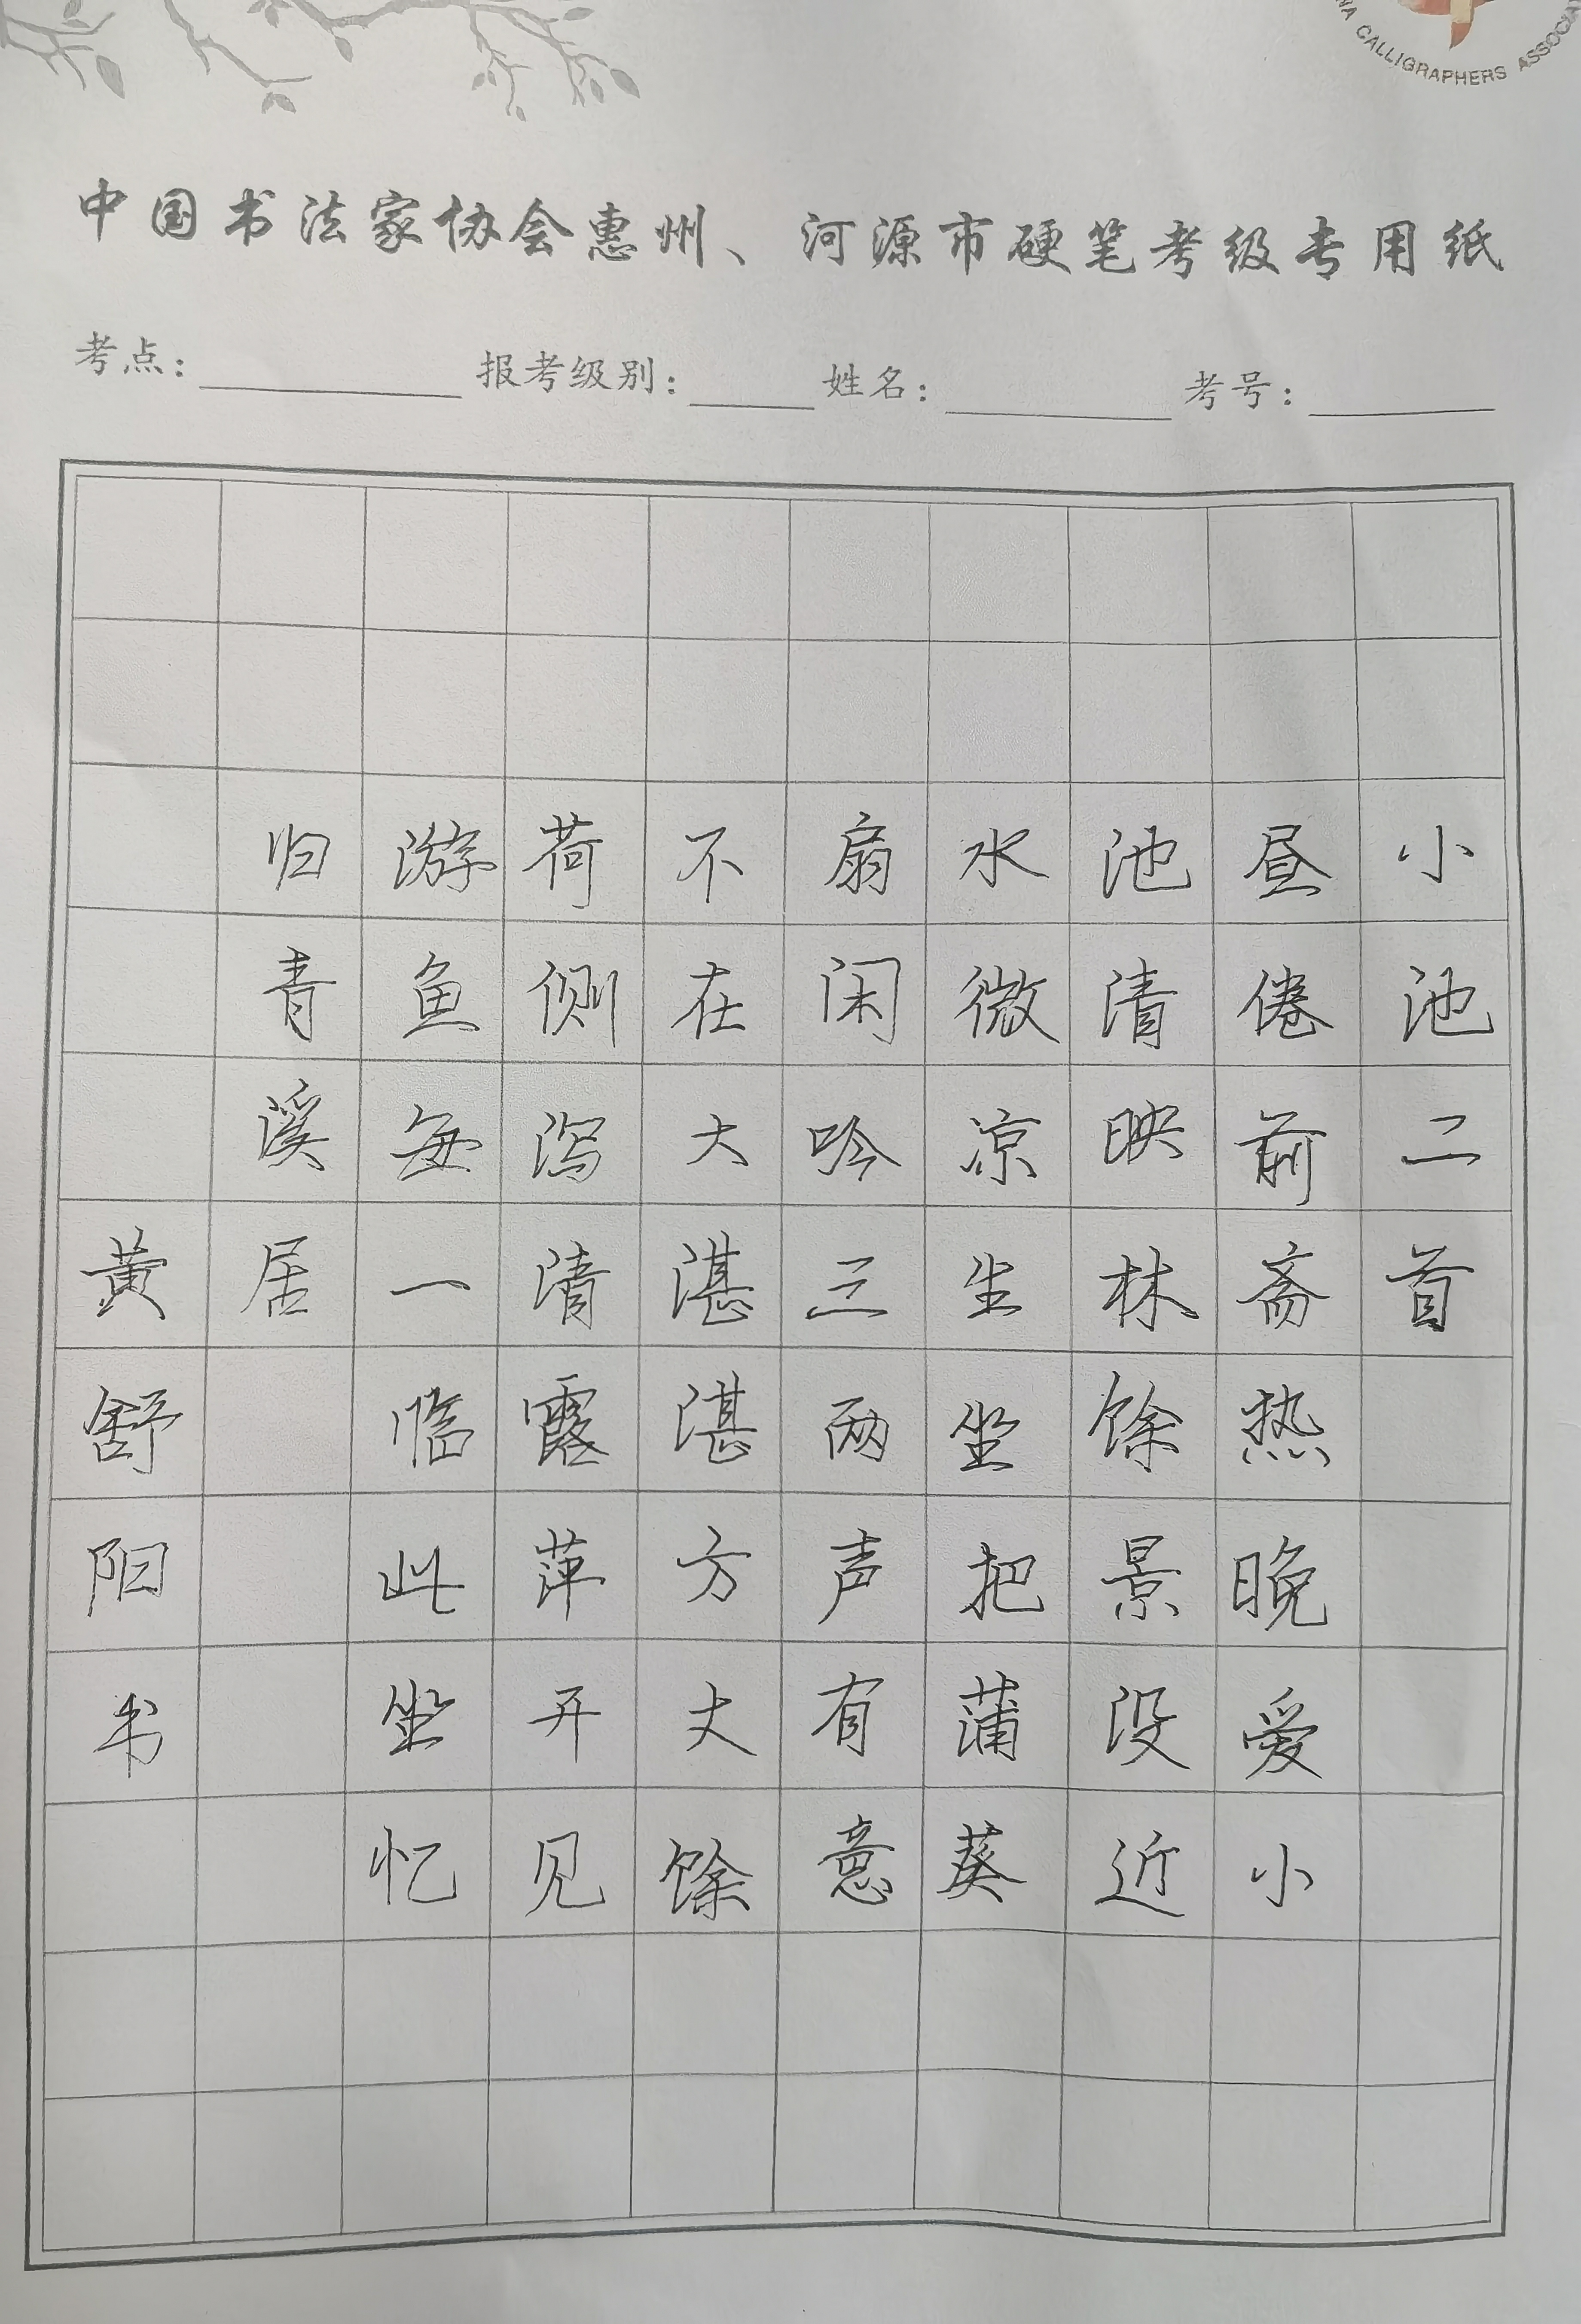 NA CALLIGRAPHERS ASSOCIA
中国书法家协会惠州、河源市硬笔考级专用纸
考点： 报考级别： 姓名： 考号：
小池二首
昼倦前斋热晚爱小
池清映林馀景没近
水微凉生坐把蒲葵
扇闲吟三两声有意
不在大湛湛方丈馀
荷侧泻清露萍开见
游鱼每一临此坐忆
归青溪居
黄舒阳书